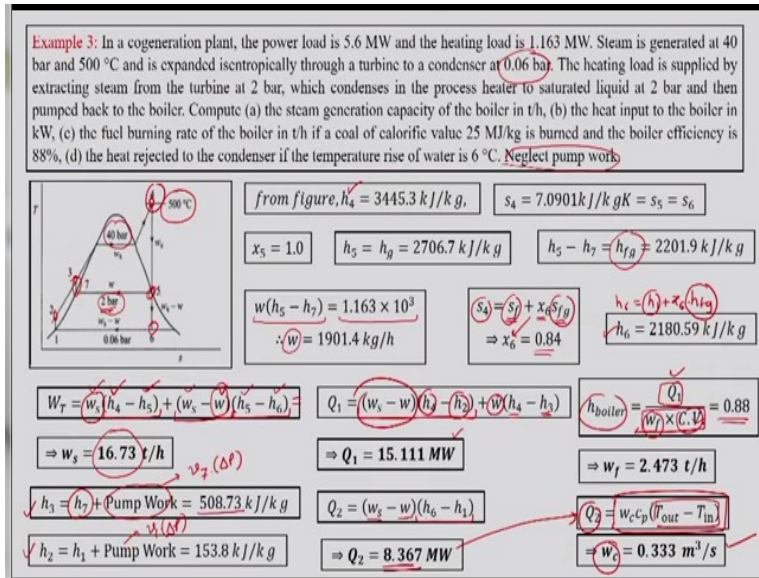 Example 3: In a cogeneration plant, the power load is 5.6 MW and the heating load is 1.163 MW. Steam is generated at 40
bar and 500 °C and is expanded isentropically through a turbine to a condenser at 0.06 bar. The heating load is supplied by
extracting steam from the turbine at 2 bar, which condenses in the process heater to saturated liquid at 2 bar and then
pumped back to the boiler. Compute (a) the steam generation capacity of the boiler in t/h, (b) the heat input to the boiler in
kW, (c) the fuel burning rate of the boiler in t/h if a coal of calorific value 25 MJ/kg is burned and the boiler efficiency is
88%, (d) the heat rejected to the condenser if the temperature rise of water is 6 °C. Neglect pump work
T
4
500 °C
40 bar
wₛ
wₛ
3
7
w
2 bar
5
2
wₛ-w
wₛ-w
1
0.06 bar
6
s
from figure, h₄ = 3445.3 kJ/kg,
s₄ = 7.0901kJ/kgK = s₅ = s₆
x₅ = 1.0
h₅ = h_g = 2706.7 kJ/kg
h₅ − h₇ = h_fg = 2201.9 kJ/kg
w(h₅ − h₇) = 1.163 × 10³
∴ w = 1901.4 kg/h
s₄ = s_f + x₆s_fg
⇒ x₆ = 0.84
h₆ = h_f + x₆ . h_fg
h₆ = 2180.59 kJ/kg
W_T = wₛ(h₄ − h₅) + (wₛ − w)(h₅ − h₆) =
⇒ wₛ = 16.73 t/h
Q₁ = (wₛ − w)(h₄ − h₂) + w(h₄ − h₃)
⇒ Q₁ = 15.111 MW
h_boiler = Q₁ / (w_f × C.V.) = 0.88
⇒ w_f = 2.473 t/h
v₇.(ΔP)
h₃ = h₇ + Pump Work = 508.73 kJ/kg
v₁(ΔP)
h₂ = h₁ + Pump Work = 153.8 kJ/kg
Q₂ = (wₛ − w)(h₆ − h₁)
⇒ Q₂ = 8.367 MW
Q₂ = w_c c_p(T_out − T_in)
⇒ w_c = 0.333 m³/s